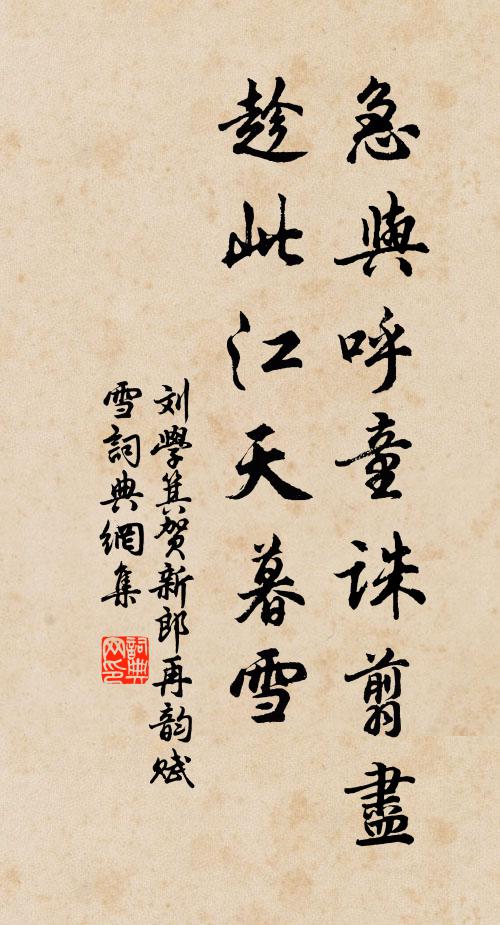 急與呼童誅翦盡
趁此江天暮雪
刘學箕贺新郎再韵赋
雪詞典網集
詞典网印